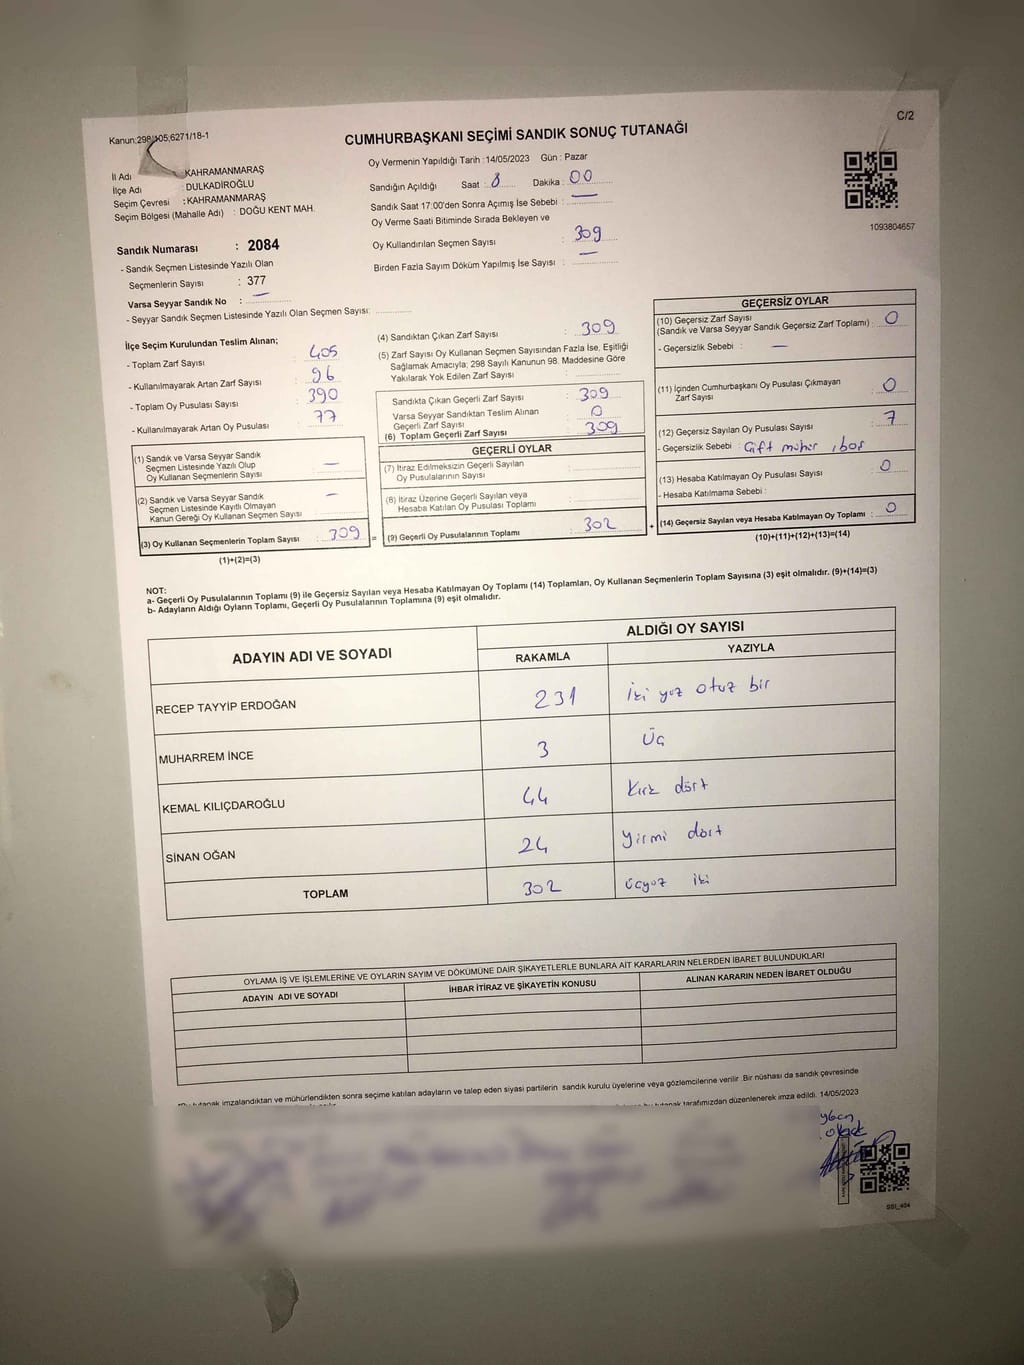 C/2
Kanun:298/105;6271/18-1
CUMHURBAŞKANI SEÇİMİ SANDIK SONUÇ TUTANAĞI
İl Adı : KAHRAMANMARAŞ
İlçe Adı : DULKADİROĞLU
Seçim Çevresi : KAHRAMANMARAŞ
Seçim Bölgesi (Mahalle Adı) : DOĞU KENT MAH.
Oy Vermenin Yapıldığı Tarih :14/05/2023 Gün : Pazar
Sandığın Açıldığı Saat : 8 Dakika : 00
Sandık Saat 17:00'den Sonra Açılmış İse Sebebi : —
Oy Verme Saati Bitiminde Sırada Bekleyen ve
Oy Kullandırılan Seçmen Sayısı : 309
Birden Fazla Sayım Döküm Yapılmış İse Sayısı : —
1093804657
Sandık Numarası : 2084
- Sandık Seçmen Listesinde Yazılı Olan
Seçmenlerin Sayısı : 377
Varsa Seyyar Sandık No : —
- Seyyar Sandık Seçmen Listesinde Yazılı Olan Seçmen Sayısı:
İlçe Seçim Kurulundan Teslim Alınan;
- Toplam Zarf Sayısı : 405
- Kullanılmayarak Artan Zarf Sayısı : 96
- Toplam Oy Pusulası Sayısı : 390
- Kullanılmayarak Artan Oy Pusulası : 77
(1) Sandık ve Varsa Seyyar Sandık
Seçmen Listesinde Yazılı Olup
Oy Kullanan Seçmenlerin Sayısı : —
(2) Sandık ve Varsa Seyyar Sandık
Seçmen Listesinde Kayıtlı Olmayan
Kanun Gereği Oy Kullanan Seçmen Sayısı : —
(3) Oy Kullanan Seçmenlerin Toplam Sayısı : 309 =
(1)+(2)=(3)
(4) Sandıktan Çıkan Zarf Sayısı : 309
(5) Zarf Sayısı Oy Kullanan Seçmen Sayısından Fazla İse, Eşitliği
Sağlamak Amacıyla; 298 Sayılı Kanunun 98. Maddesine Göre
Yakılarak Yok Edilen Zarf Sayısı :
Sandıkta Çıkan Geçerli Zarf Sayısı : 309
Varsa Seyyar Sandıktan Teslim Alınan
Geçerli Zarf Sayısı : 0
(6) Toplam Geçerli Zarf Sayısı : 309
GEÇERLİ OYLAR
(7) İtiraz Edilmeksizin Geçerli Sayılan
Oy Pusulalarının Sayısı :
(8) İtiraz Üzerine Geçerli Sayılan veya
Hesaba Katılan Oy Pusulası Toplamı :
(9) Geçerli Oy Pusulalarının Toplamı : 302 +
GEÇERSİZ OYLAR
(10) Geçersiz Zarf Sayısı
(Sandık ve Varsa Seyyar Sandık Geçersiz Zarf Toplamı) : 0
- Geçersizlik Sebebi : —
(11) İçinden Cumhurbaşkanı Oy Pusulası Çıkmayan
Zarf Sayısı : 0
(12) Geçersiz Sayılan Oy Pusulası Sayısı : 7
- Geçersizlik Sebebi : Çift mühür, boş
(13) Hesaba Katılmayan Oy Pusulası Sayısı : 0
- Hesaba Katılmama Sebebi :
(14) Geçersiz Sayılan veya Hesaba Katılmayan Oy Toplamı : 0
(10)+(11)+(12)+(13)=(14)
NOT:
a- Geçerli Oy Pusulalarının Toplamı (9) ile Geçersiz Sayılan veya Hesaba Katılmayan Oy Toplamı (14) Toplamları, Oy Kullanan Seçmenlerin Toplam Sayısına (3) eşit olmalıdır. (9)+(14)=(3)
b- Adayların Aldığı Oyların Toplamı, Geçerli Oy Pusulalarının Toplamına (9) eşit olmalıdır.
ADAYIN ADI VE SOYADI
ALDIĞI OY SAYISI
RAKAMLA YAZIYLA
RECEP TAYYİP ERDOĞAN 231 iki yüz otuz bir
MUHARREM İNCE 3 Üç
KEMAL KILIÇDAROĞLU 44 kırk dört
SİNAN OĞAN 24 yirmi dört
TOPLAM 302 üçyüz iki
OYLAMA İŞ VE İŞLEMLERİNE VE OYLARIN SAYIM VE DÖKÜMÜNE DAİR ŞİKAYETLERLE BUNLARA AİT KARARLARIN NELERDEN İBARET BULUNDUKLARI
ADAYIN ADI VE SOYADI İHBAR İTİRAZ VE ŞİKAYETİN KONUSU ALINAN KARARIN NEDEN İBARET OLDUĞU
tutanak imzalandıktan ve mühürlendikten sonra seçime katılan adayların ve talep eden siyasi partilerin sandık kurulu üyelerine veya gözlemcilerine verilir .Bir nüshası da sandık çevresinde
tutanak tarafımızdan düzenlenerek imza edildi. 14/05/2023
SSI_404